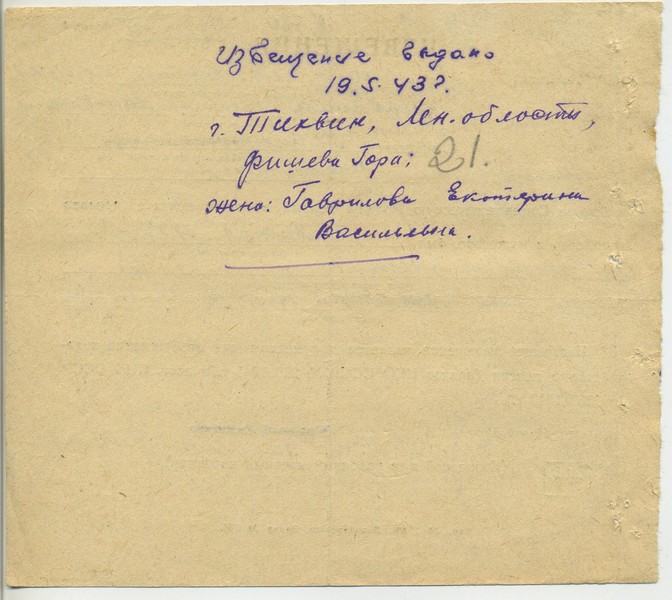 Извещение выдано
19.5.43г.
г. Тихвин, Лен. области,
Фишева Гора; 21.
жена: Гаврилова Екатерина
Васильевна.